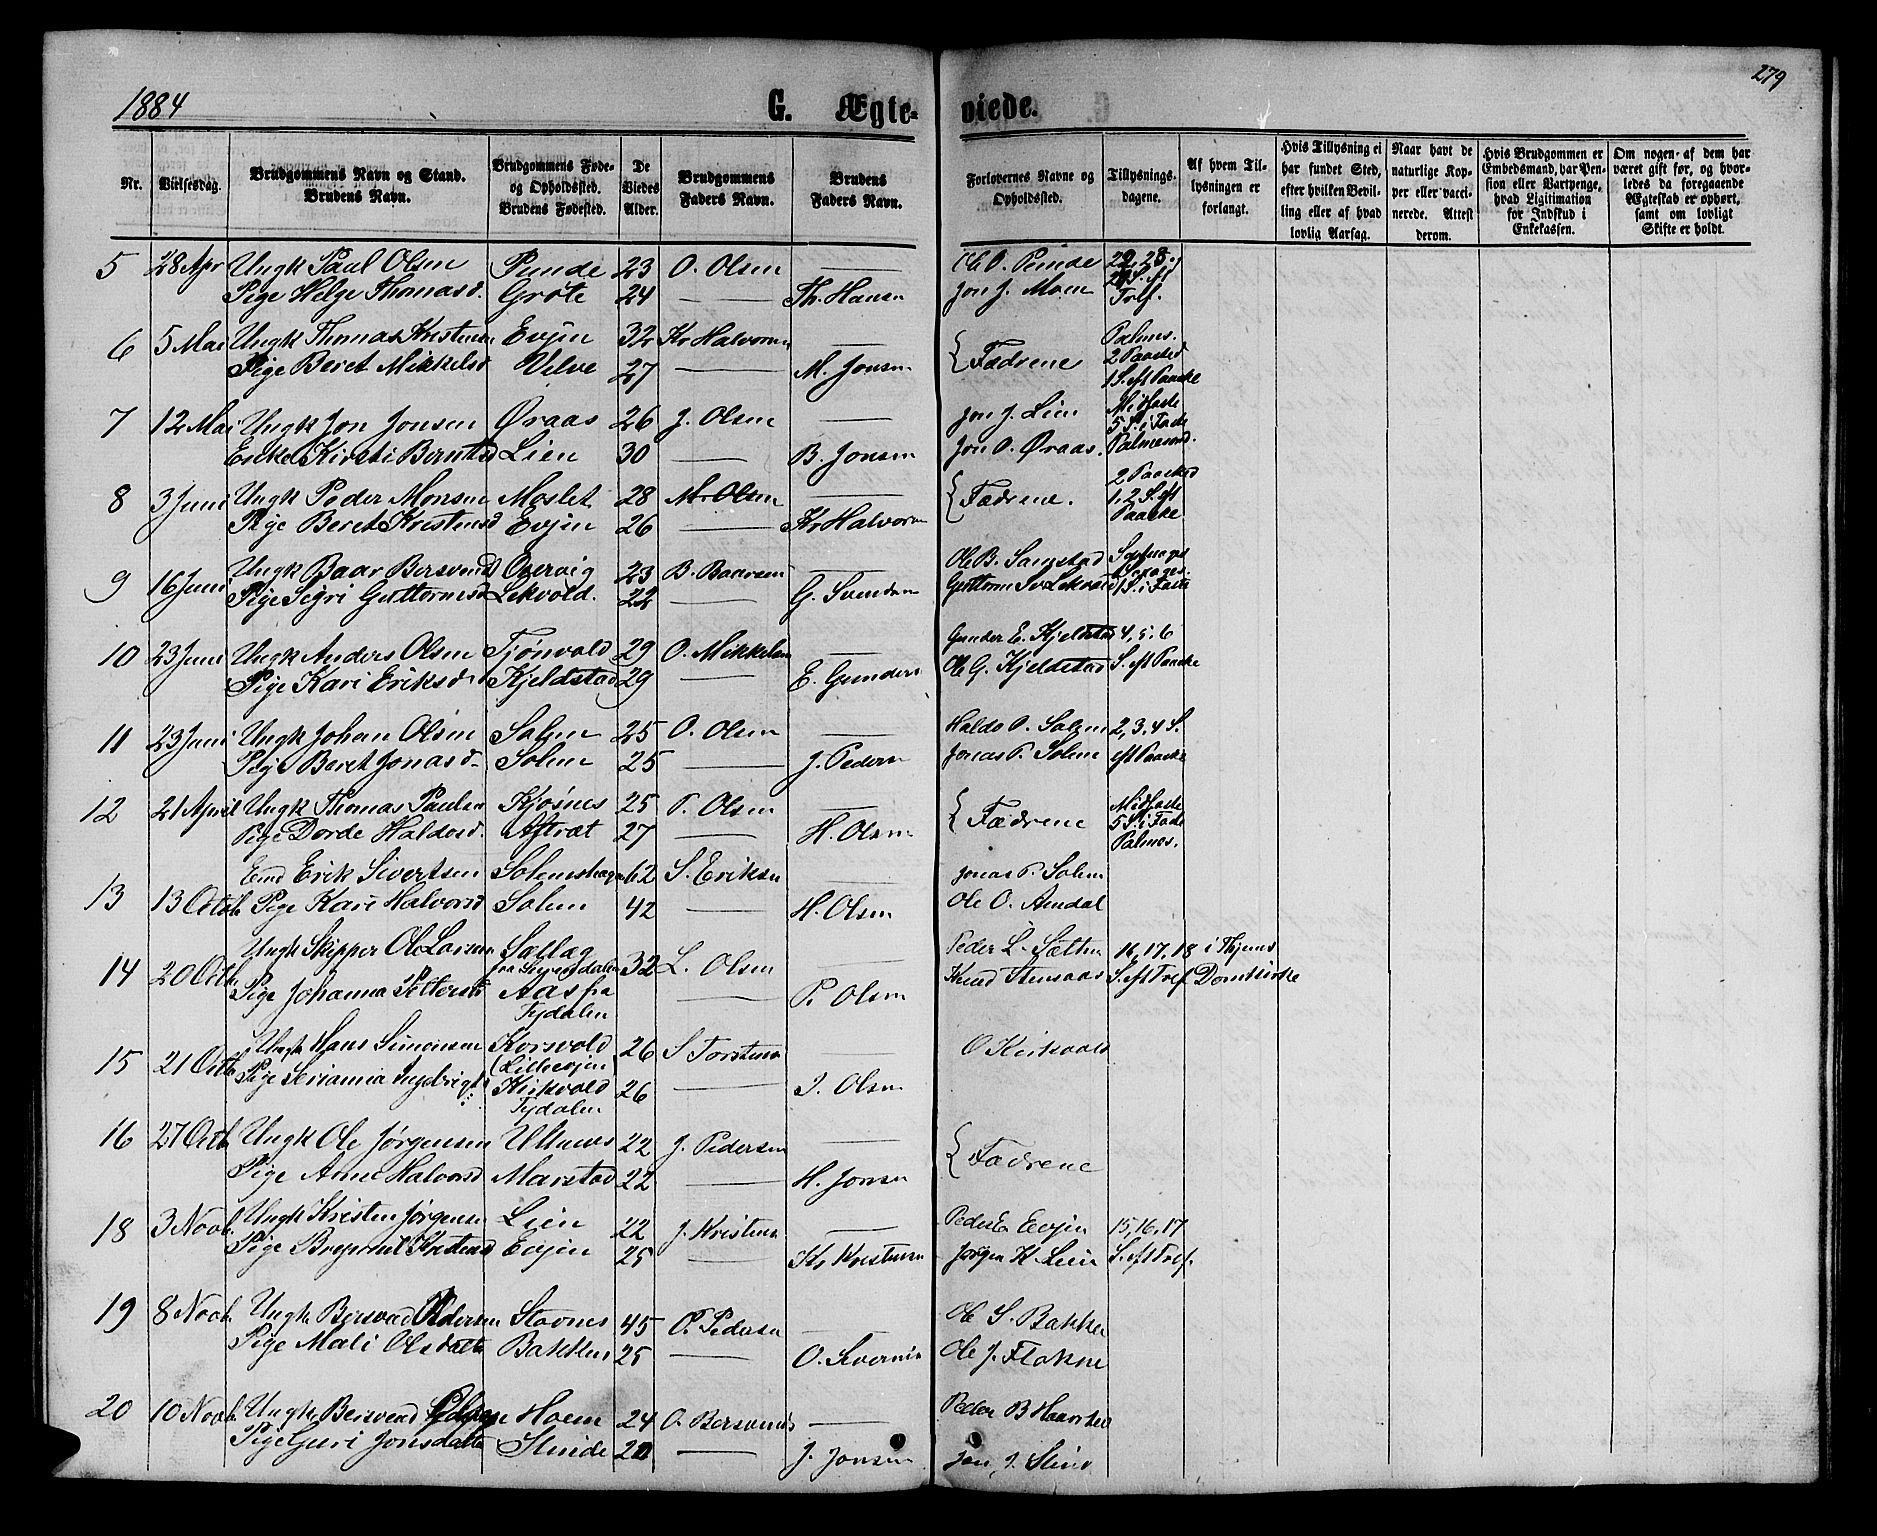 279
1884 G. Ægte- viede.
Nr. Vielsesdag. Brudgommens Navn og Stand. Brudens Navn. Brudgommens Føde- og Opholdssted. Brudens Fødested. De Viedes Alder. Brudgommens Faders Navn. Brudens Faders Navn. Forlovernes Navne og Opholdssted. Tillysnings-dagene. Af hvem Tillysningen er forlangt. Hvis Tillysning ei har fundet Sted, efter hvilken Bevilling eller af hvad lovlig Aarsag. Naar havt de naturlige Kopper eller vaccinerede. Attest derom. Hvis Brudgommen er Embedsmand, har Pension eller Vartpenge, hvad Legitimation for Indskud i Enkekassen. Om nogen af dem har været gift før, og hvorledes da foregaaende Ægteskab er ophørt, samt om lovligt Skifte er holdt.
5 28 Apr Ungk Paul Olsen Punde 23 O. Olsen — Ole O. Punde 22, 23 og
Pige Helge Thomasd. Grøte 24 — Th. Hansen Jon J. Moen 24 S. eft Tref.
6 5 Mai Ungk Thomas Kristensen Evjen 32 Kr Halvorsen — { Fædrene Palmes.
Pige Beret Mikkelsd Velve 27 — M. Jonsen 2 Paasked 1 S. eft Paaske
7 12 Mai Ungk Jon Jonsen Øraas 26 J. Olsen — Jon J. Lien Midfaste 5 S. i Faste
Enke Kirsti Berntsd Lien 30 — B. Jonsen Jon O. Øraas. Palmesønd.
8 3 Juni Ungk Peder Monsen Moslet 28 M. Olsen — { Fædrene. 2 Paasked
Pige Beret Kristensd Evjen 26 — Kr Halvorsn 1, 2 S. eft Paaske.
9 16 Juni Ungk Baar Bersvends Overvig 23 B. Baarsen — Ole B. Samstad
Pige Sigri Guttormsd Lekvold. 22 — G. Svendsen Guttorm Sv Lekvold 1 S. i Faste
10 23 Juni Ungk Anders Olsen Tjønvold 29 O. Mikkelsen — Gunder E. Kjeldstad 4, 5, 6
Pige Kari Eriksd Kjeldstad 29 — E. Gunders Ole G. Kjeldstad S. eft Paaske
11 23 Juni Ungk Johan Olsen Solem 25 O. Olsen — Haldo O. Solem 2, 3, 4 S.
Pige Beret Jonasd. Solem 25 — J. Pedersn Jonas P. Solem eft Paaske
12 21 April Ungk Thomas Paulsen Kjøsnes 25 P. Olsen — { Fædrene Midfaste 5 S. i Faste
Pige Dorde Haldosd. Aftræt 27 — H. Olsen Palmes.
13 13 Octb Emd Erik Sivertsen Solemshagen 62 S. Eriksen — Jonas P. Solem
Pige Kari Halvorsd Solem 42 — H. Olsen Ole O. Amdal
14 20 Octb Ungk Skipper Ole Larsen Sætlag fra Stjørdalen 32 L. Olsen — Peder L. Sætten 16, 17, 18 i Thjems
Pige Johanna Pettersd Aas fra Tydalen — P. Olsen Knud Stensaas S. eft Tref Domkirke
15 21 Octb Ungk Hans Simonsen Korsvold (Lillevjen) 26 S Torstensn — O Kirkvold
Pige Serianna Ingebrigts: Kirkvold Tydalen 26 — I. Olsen
16 27 Octb Ungk Ole Jørgensen Ulstenes 22 J. Pedersen — { Fædrene
Pige Anne Halvorsd Marstad 22 — H. Jonsen
18 3 Novb. Ungk Kristen Jørgensen Lien 22 J. Kristensn — Peder E Evjen 15, 16, 17
Pige Bryngil Kristensd Evjen 25 — Kr Kristensen Jørgen K. Lien S. eft Tref.
19 8 Novb. Ungk Bersvend Pedersen Stavnes 45 O. Pedersen — Ole S. Bakken
Pige Mali Olsdatte Bakken 25 — O. Siversn Ole J. Flaknе
20 10 Novb. Ungk Bersvend Olsen Moen 24 O. Bersvends — Peder B Haarstad
Pige Guri Jonsdatte Slinde 20 — J. Jonsen Jon J. Slind